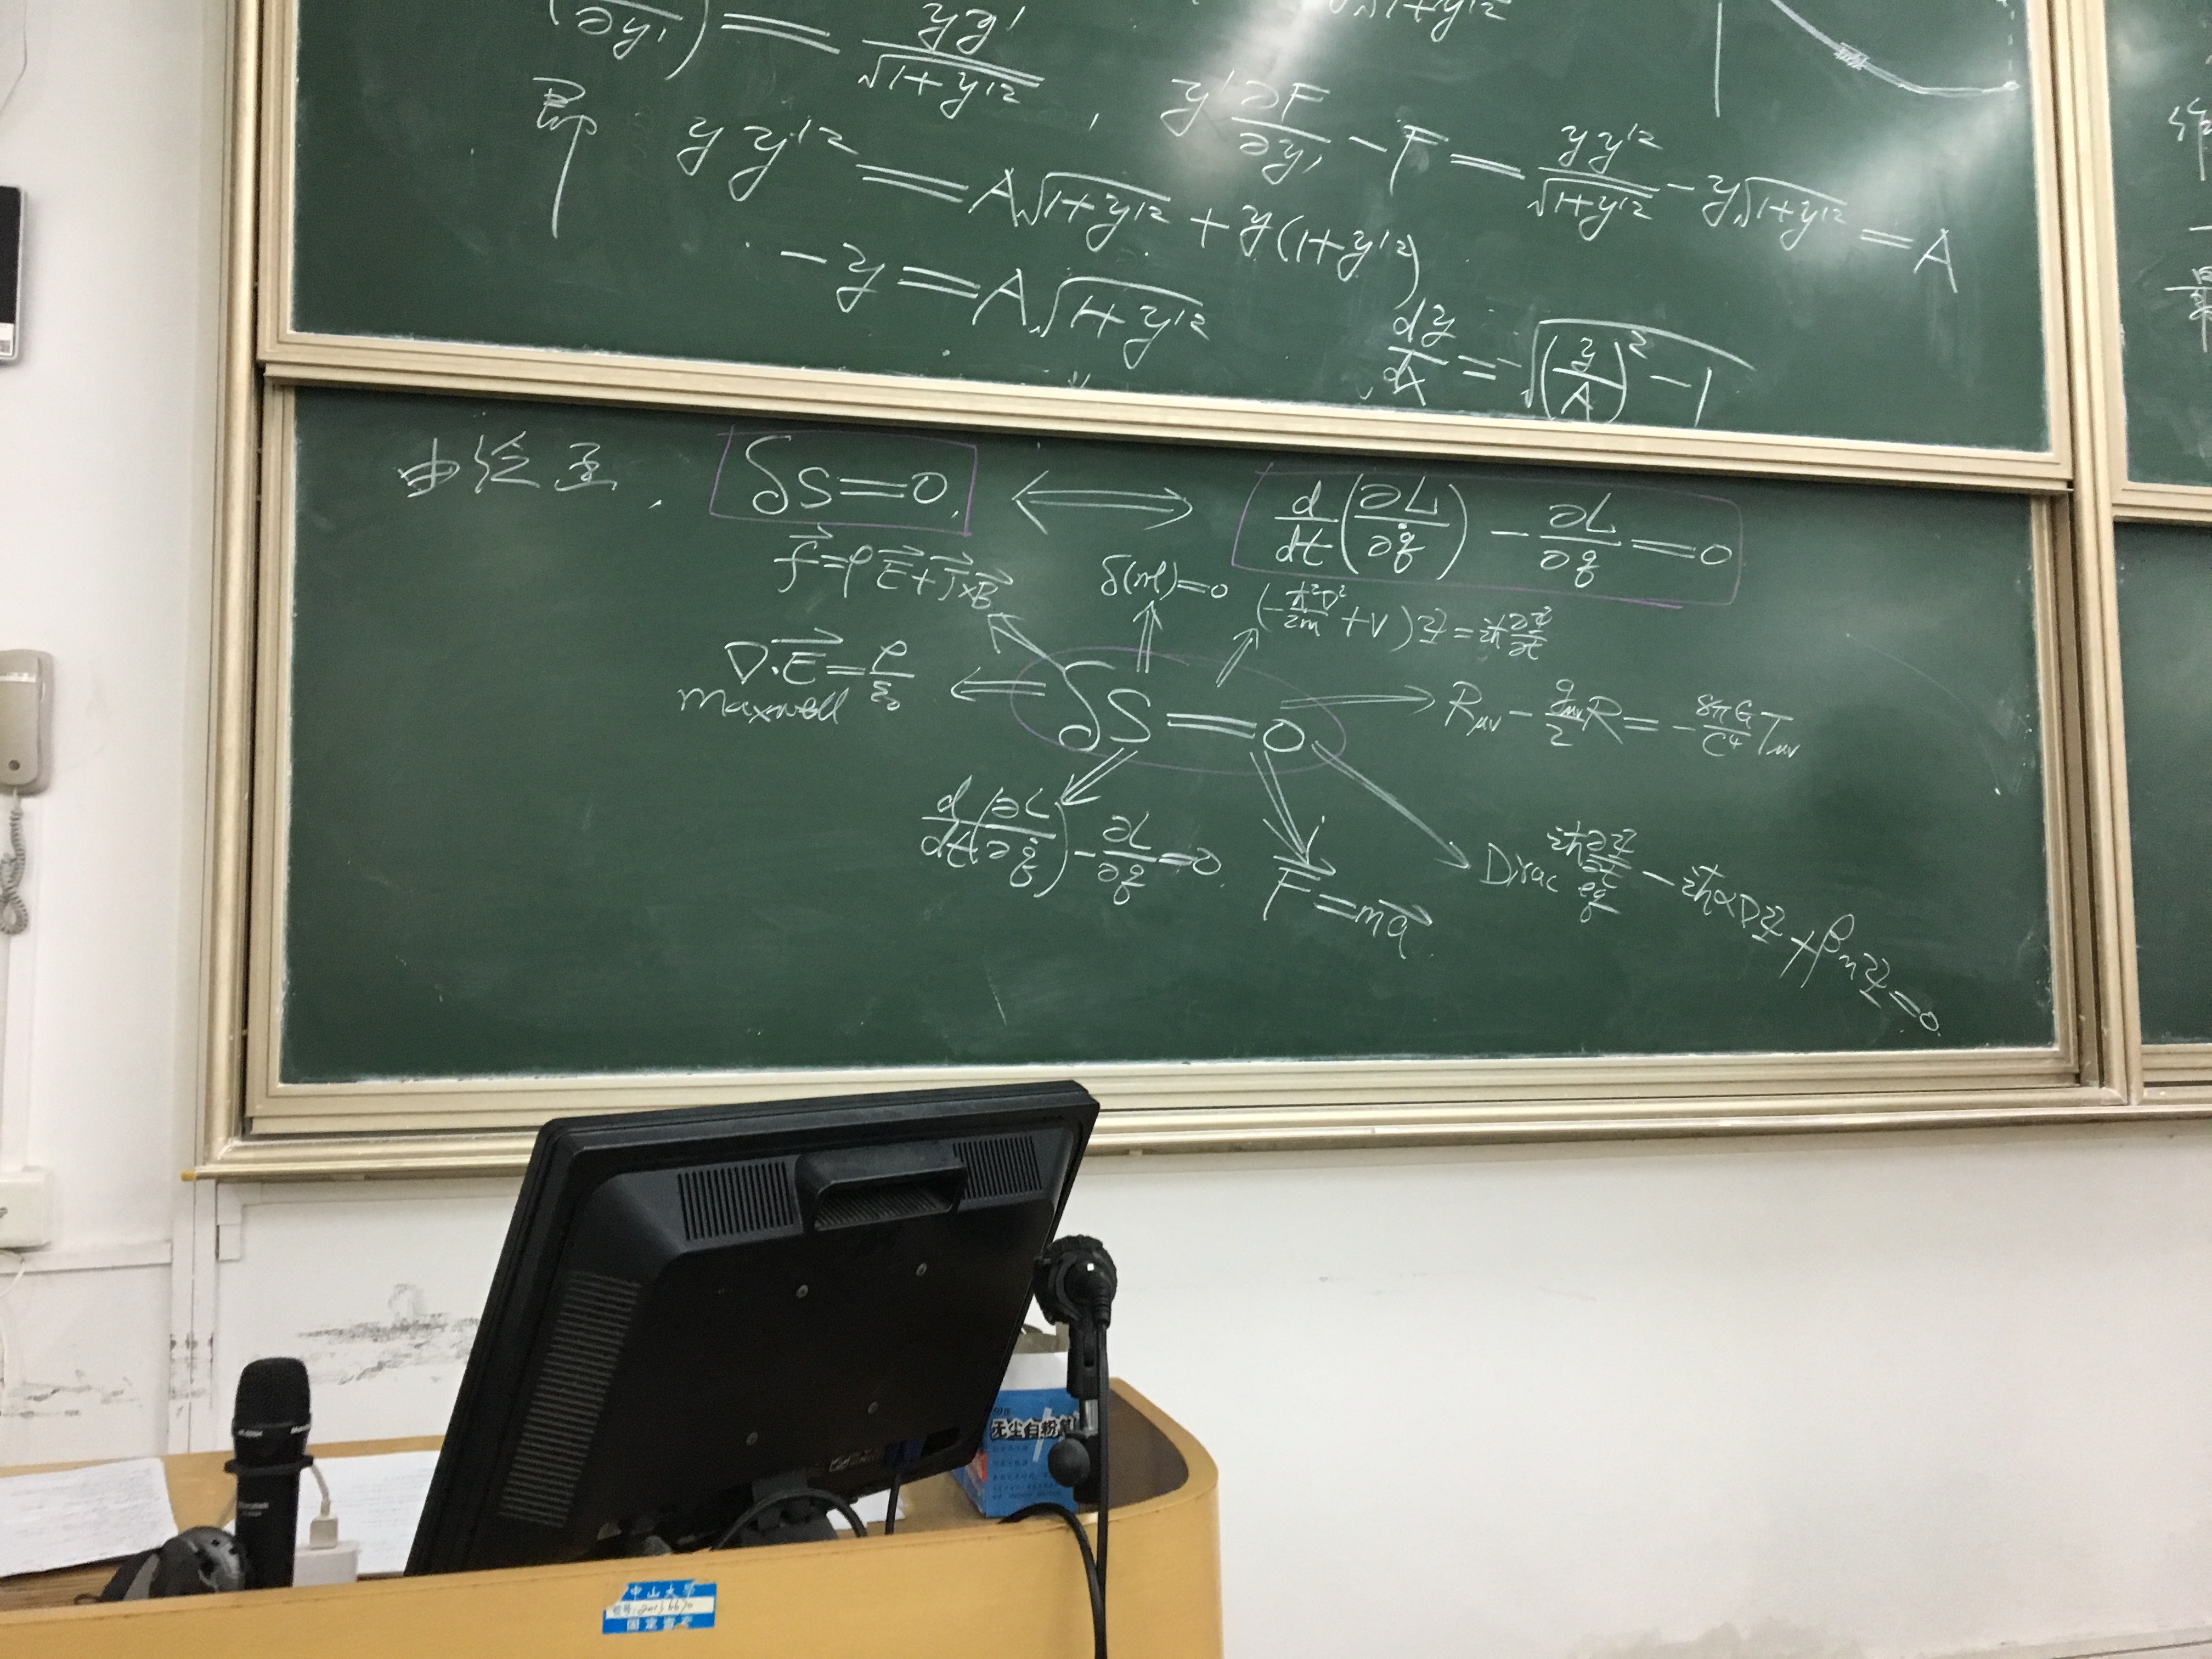 (∂y') = yy'/√(1+y'²)
√(1+y'²)
y' ∂F/∂y' − F = yy'²/√(1+y'²) − y√(1+y'²) = A
即 yy'² = A√(1+y'²) + y(1+y'²)
−y = A√(1+y'²)
dy/dA = √((y/A)² − 1)
δS=0. ⟺ d/dt(∂L/∂q̇) − ∂L/∂q = 0
f⃗ = ρE⃗ + J⃗×B⃗
δ(nl)=0
(−ħ²∇²/2m + V)Ψ = iħ ∂Ψ/∂t
∇·E⃗ = ρ/ε₀
maxwell
δS=0
Rμν − gμν/2 R = −8πG/C⁴ Tμν
d/dt(∂L/∂q̇) − ∂L/∂q = 0
F⃗ = ma⃗
Dirac eq iħ ∂Ψ/∂t − iħα∇Ψ + βmΨ = 0
无尘白粉
中山大学
固定资产